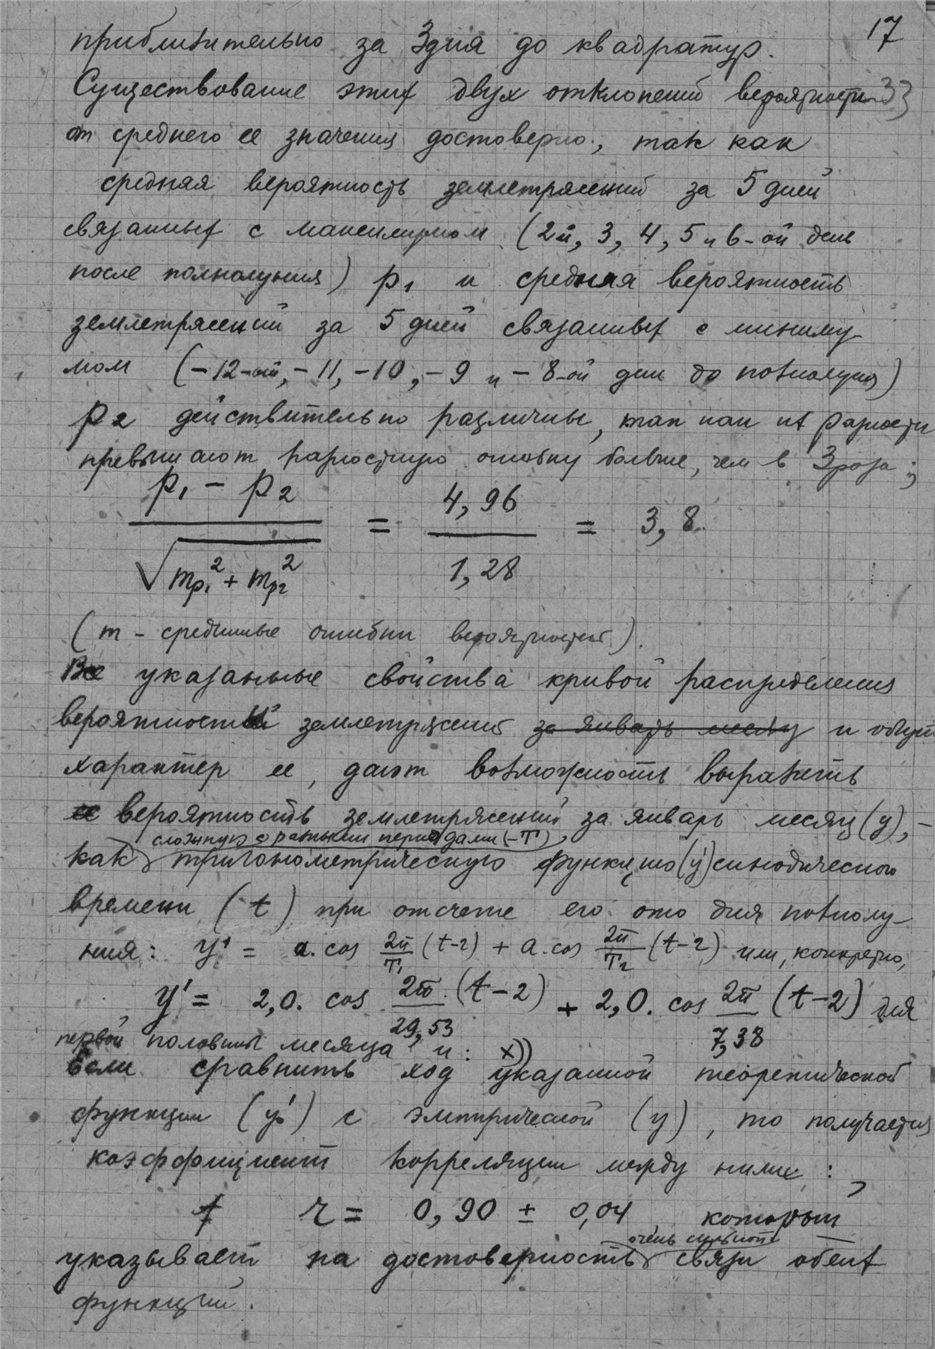 17
приблизительно за 3 дня до квадратур.
Существование этих двух отклонений вероятности 33
от среднего ее значения достоверно, так как
средняя вероятность землетрясений за 5 дней
связанных с максимумом (2й, 3, 4, 5 и 6-ой день
после полнолуния) p₁ и средняя вероятность
землетрясений за 5 дней связанных с миниму-
мом (-12-ой, -11, -10, -9 и -8-ой дни до полнолуния)
p₂ действительно различны, так как их разности
превышают разностную ошибку больше, чем в 3 раза;
(p₁ - p₂) / √(mp₁² + mp₂²) = 4,96 / 1,28 = 3,8.
(m - срединные ошибки вероятностей).
Все указанные свойства кривой распределения
вероятностей землетрясений за январь месяц и общий
характер ее, дают возможность выразить
ее вероятность землетрясений за январь месяц (y), -
сложную с разными периодами (-T)
как тригонометрическую функцию (y') синодического
времени (t) при отсчете его ото дня полнолу-
ния: y' = a. cos 2π/T₁ (t-2) + a. cos 2π/T₂ (t-2) или, конкретно,
y' = 2,0. cos 2π/29,53 (t-2) + 2,0. cos 2π/7,38 (t-2) для
первой половины месяца и: x))
Если сравнить ход указанной теоретической
функции (y') с эмпирической (y), то получается
коэффициент корреляции между ними:
r = 0,90 ± 0,04, который
очень сильной
указывает на достоверность связи обеих
функций.